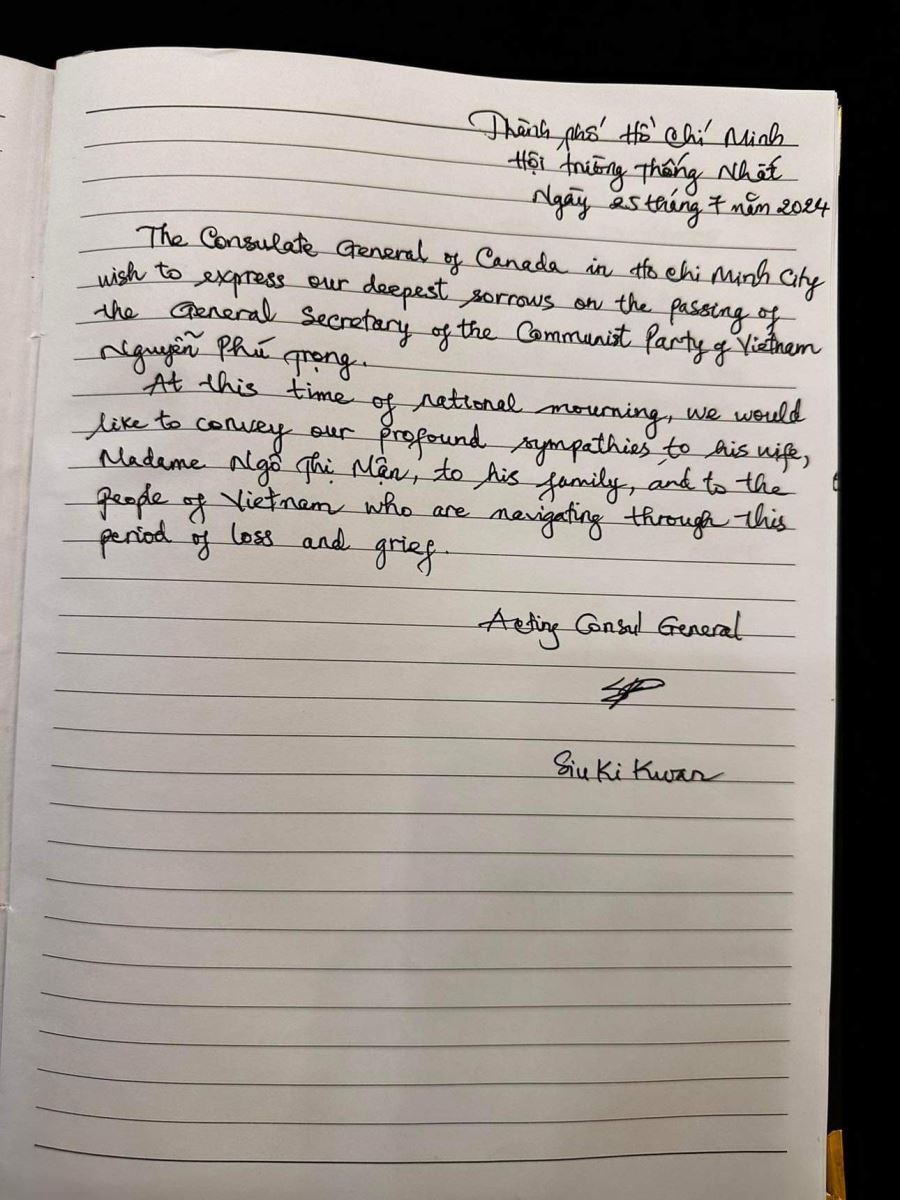 Thành phố Hồ Chí Minh
Hội trường Thống Nhất
Ngày 25 tháng 7 năm 2024
The Consulate General of Canada in Ho Chi Minh City
wish to express our deepest sorrows on the passing of
the General Secretary of the Communist Party of Vietnam
Nguyễn Phú Trọng.
At this time of national mourning, we would
like to convey our profound sympathies to his wife,
Madame Ngô Thị Mận, to his family, and to the
people of Vietnam who are navigating through this
period of loss and grief.
Acting Consul General
Siu Ki Kwan